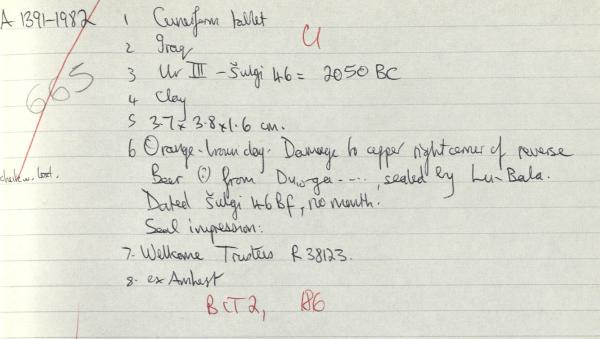 A 1391-1982
1 Cuneiform tablet
CI
2 Iraq
3 Ur III - Šulgi 46 = 2050 BC
665
4 Clay
5 3.7 x 3.8 x 1.6 cm.
6 Orange-brown clay. Damage to upper right corner of reverse
Beer (?) from Du₁₀-ga ----, sealed by Lu-Bala.
Dated Šulgi 46 Bf, no month.
Seal impression.
7. Wellcome Trustees R 38123.
8. ex Amherst
BCT 2, 86